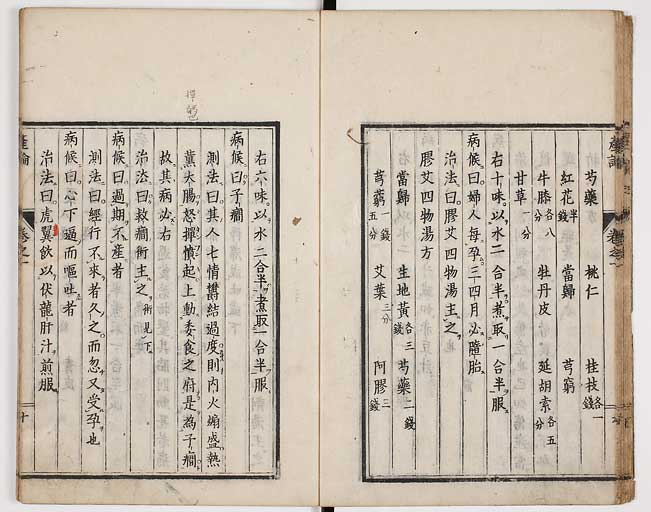 芍藥 桃仁 桂枝各一錢
紅花半錢 當歸 芎窮
牛膝各八分 牡丹皮 延胡索各五分
甘草一分
右十味以水二合半煮取一合半服
病候曰婦人每孕三四月必墮胎
治法曰膠艾四物湯主之
膠艾四物湯方
當歸 生地黃各三錢 芍藥二錢
芎窮一錢五分 艾葉三分 阿膠二錢
右六味以水二合半煮取一合半服
病候曰子癇
測法曰其人七情鬱結過度則內火煽盛熱
薰大腸怒攆儀起上動委食之府是為子癇
故其病必右
治法曰救癇術主之術見下
病候曰過期不產者
測法曰經行不來者久之而忽又受孕也
病候曰心下逼而嘔吐者
治法曰虎翼飲以伏龍肝汁煎服
產論
卷之一
十